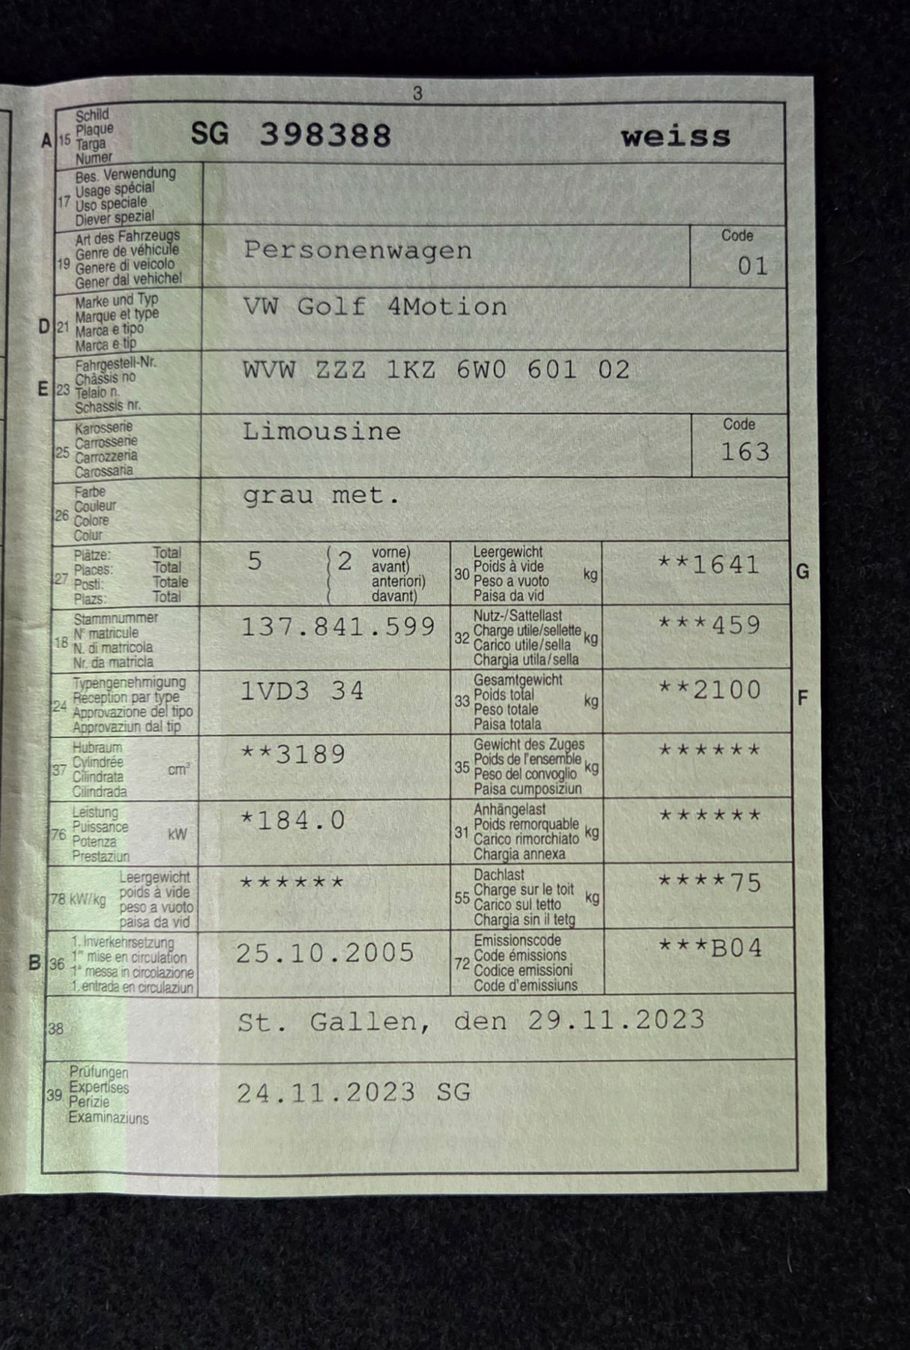 3
A 15 Schild
Plaque
Targa
Numer
SG 398388 weiss
17 Bes. Verwendung
Usage spécial
Uso speciale
Diever spezial
19 Art des Fahrzeugs
Genre de véhicule
Genere di veicolo
Gener dal vehichel
Personenwagen
Code
01
D 21 Marke und Typ
Marque et type
Marca e tipo
Marca e tip
VW Golf 4Motion
E 23 Fahrgestell-Nr.
Châssis no
Telaio n.
Schassis nr.
WVW ZZZ 1KZ 6W0 601 02
25 Karosserie
Carrosserie
Carrozzeria
Carossaria
Limousine
Code
163
26 Farbe
Couleur
Colore
Colur
grau met.
27 Plätze: Total
Places: Total
Posti: Totale
Plazs: Total
5 (2 vorne)
( avant)
( anteriori)
( davant)
30 Leergewicht
Poids à vide kg
Peso a vuoto
Paisa da vid
**1641 G
18 Stammnummer
N° matricule
N. di matricola
Nr. da matricla
137.841.599
32 Nutz-/Sattellast
Charge utile/sellette kg
Carico utile/sella
Chargia utila/sella
***459
24 Typengenehmigung
Réception par type
Approvazione del tipo
Approvaziun dal tip
1VD3 34
33 Gesamtgewicht
Poids total kg
Peso totale
Paisa totala
**2100 F
37 Hubraum
Cylindrée cm³
Cilindrata
Cilindrada
**3189
35 Gewicht des Zuges
Poids de l'ensemble kg
Peso del convoglio
Paisa cumposiziun
******
76 Leistung
Puissance kW
Potenza
Prestaziun
*184.0
31 Anhängelast
Poids remorquable kg
Carico rimorchiato
Chargia annexa
******
78 kW/kg Leergewicht
poids à vide
peso a vuoto
paisa da vid
******
55 Dachlast
Charge sur le toit kg
Carico sul tetto
Chargia sin il tetg
****75
B 36 1. Inverkehrsetzung
1re mise en circulation
1a messa in circolazione
1. entrada en circulaziun
25.10.2005
72 Emissionscode
Code émissions
Codice emissioni
Code d'emissiuns
***B04
38 St. Gallen, den 29.11.2023
39 Prüfungen
Expertises
Perizie
Examinaziuns
24.11.2023 SG